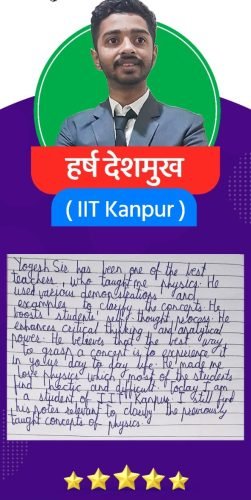 हर्ष देशमुख
( IIT Kanpur )
Yogesh Sir has been one of the best
teachers, who taught me physics. He
used various demonstrations and
examples to clarify the concepts. He
boosts students self thought process. He
enhances critical thinking and analytical
power. He believes that the best way
to grasp a concept is to experience it
in your day to day life. He made me
love physics which most of the students
find hectic and difficult. Today I am
a student of IIT Kanpur. I still find
his notes relevant to clarify the previously
taught concepts of physics.